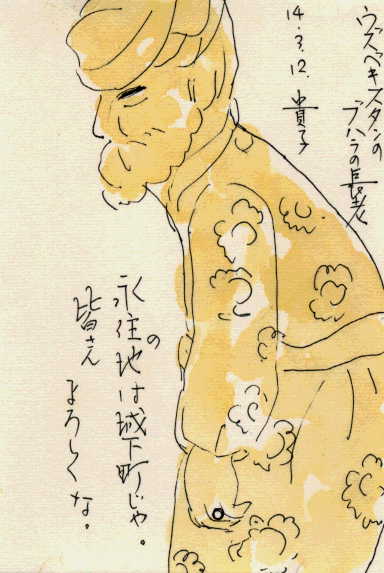 ウズベキスタンの
ブハラの長老
14.3.12. 貴子
永住の地は城下町じゃ。
皆さん
よろしくな。